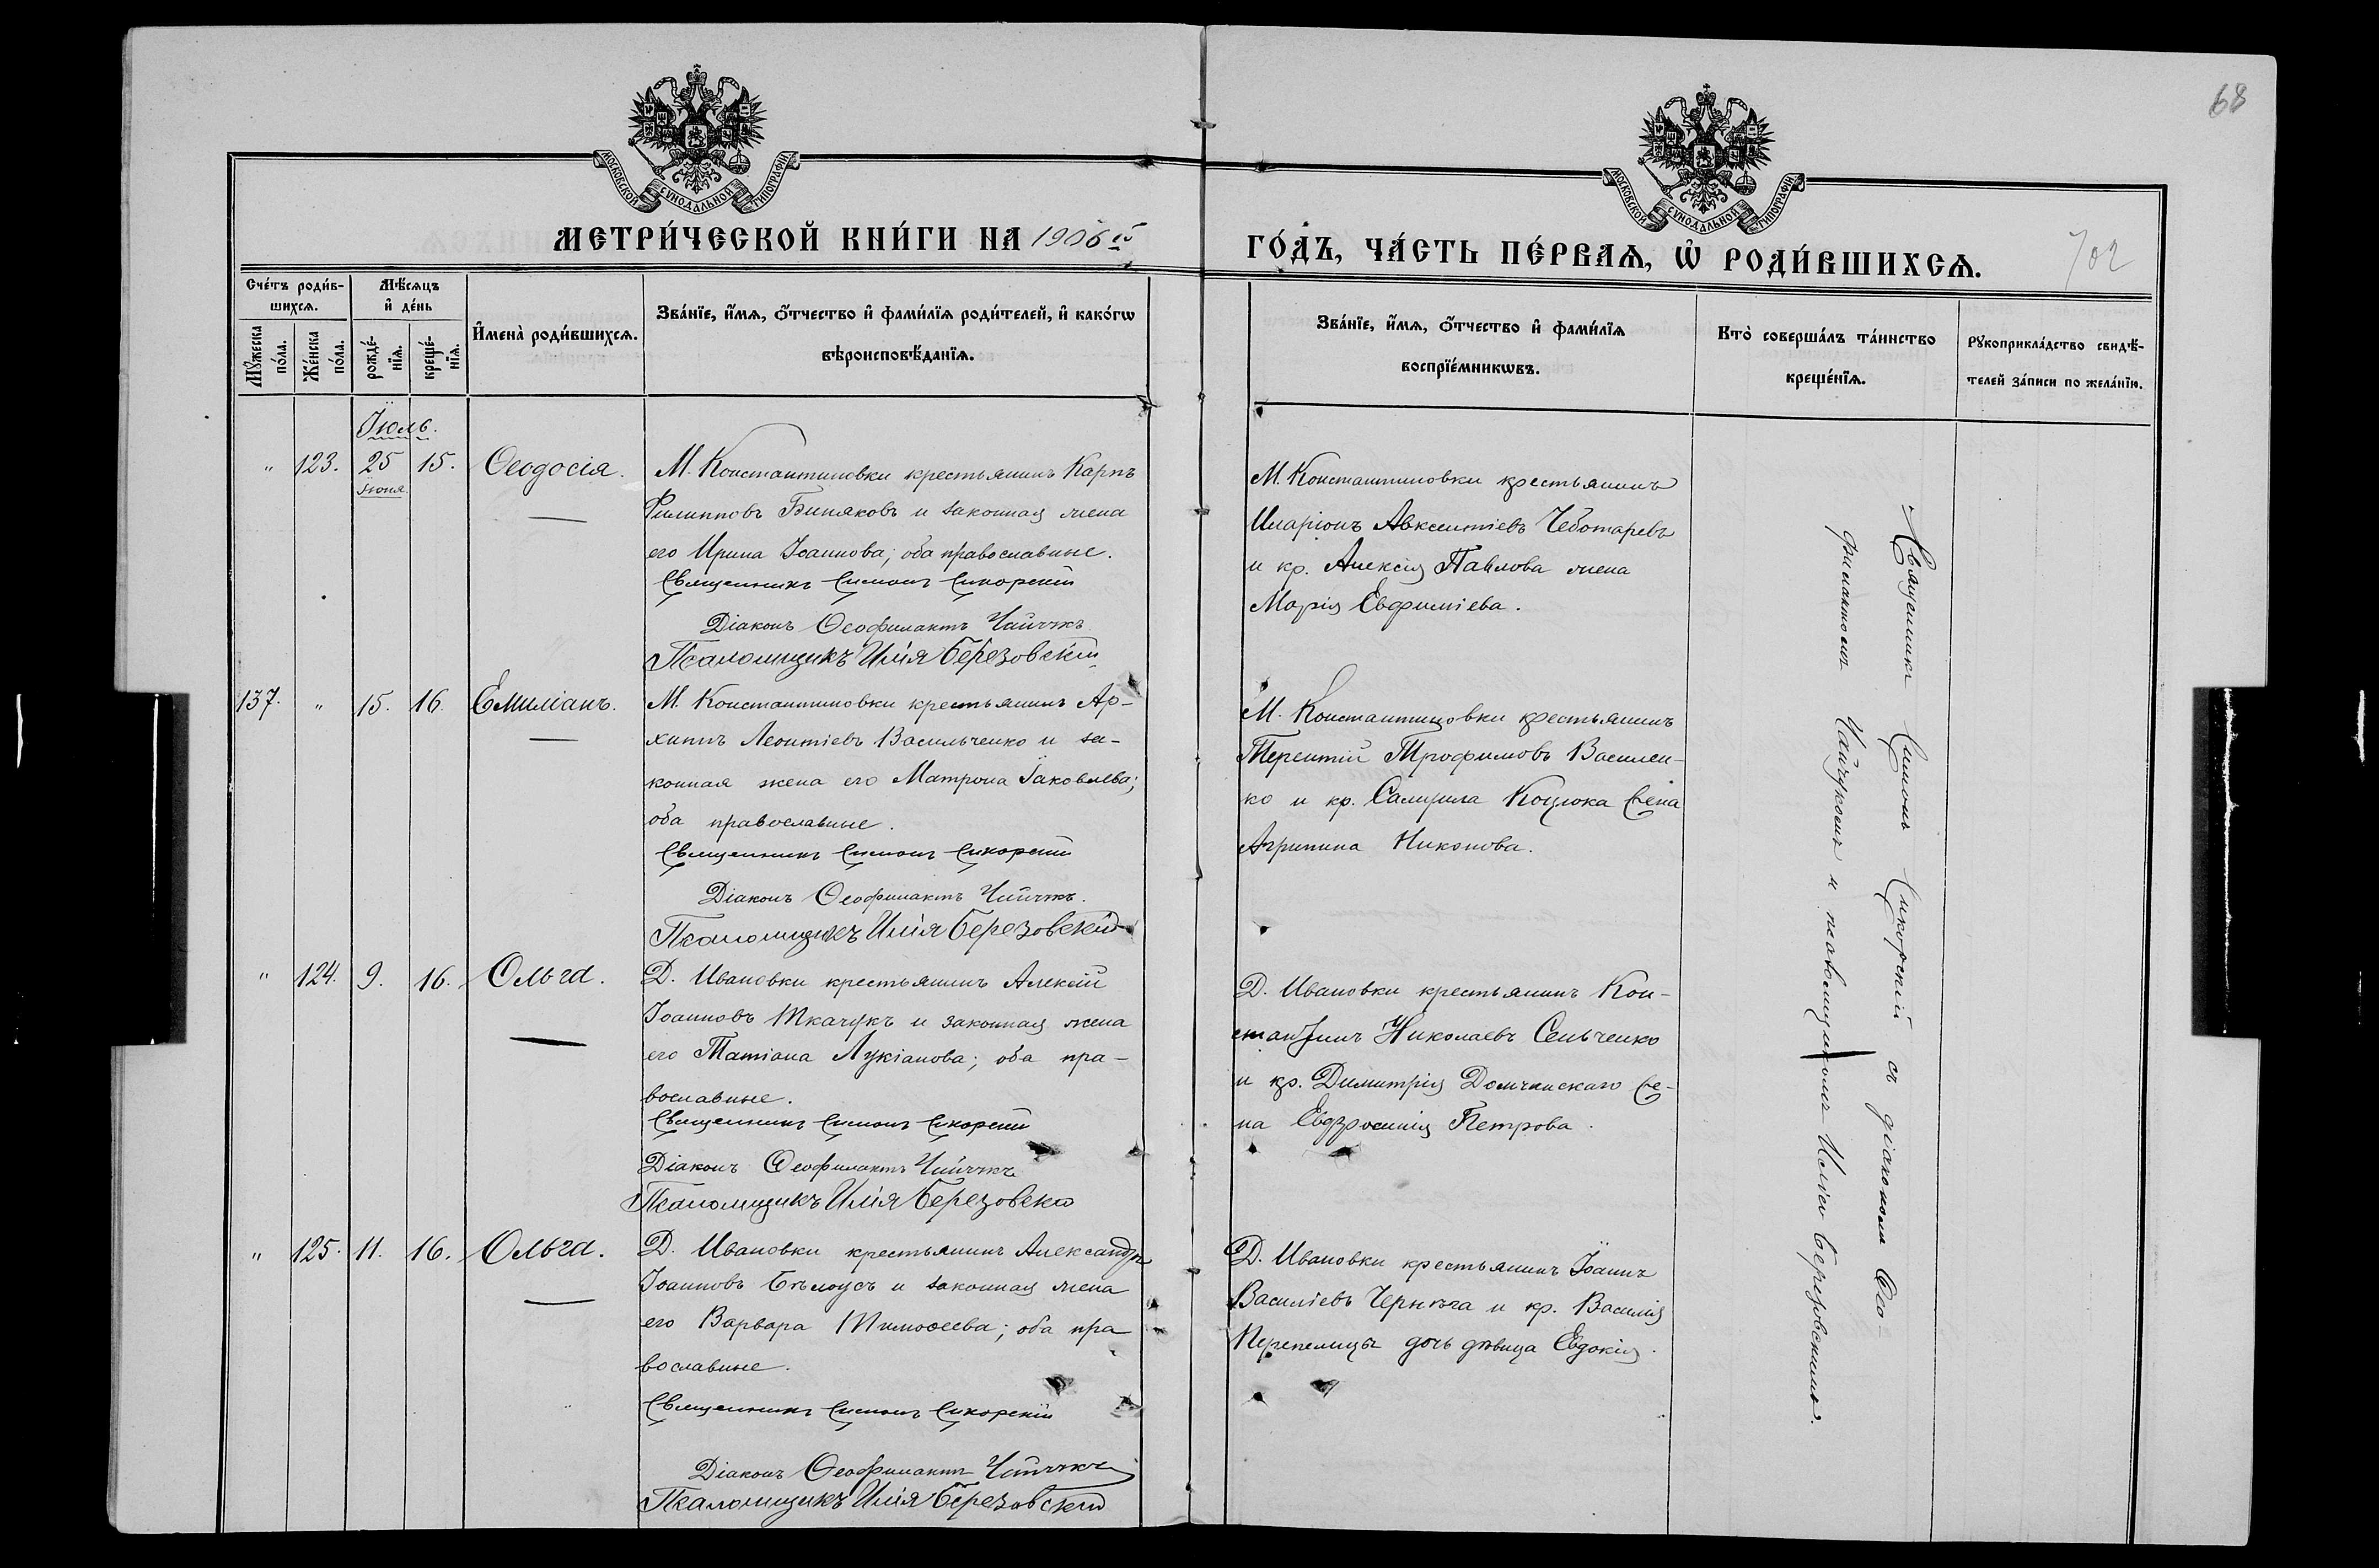 68
МОСКОВСКОЙ СѴНОДАЛЬНОЙ ТИПОГРАФІИ.
МОСКОВСКОЙ СѴНОДАЛЬНОЙ ТИПОГРАФІИ.
МЕТРИ́ЧЕСКОЙ КНИ́ГИ НА 1906 й
ГО́ДЪ, ЧА́СТЬ ПЕ́РВАѦ, Ѡ҆ РОДИ́ВШИХСѦ.
702
Сче́тъ роди́в-
шихсѧ.
Мꙋ́жеска
по́ла.
Же́нска
по́ла.
Мѣ́сѧцъ
и҆ де́нь
рожде́-
нїѧ.
креще́-
нїѧ.
И҆мена̀ роди́вшихсѧ.
Зва́нїе, и҆́мѧ, ѻ҆́тчество и҆ фами́лїѧ роди́телей, и҆ како́гѡ
вѣроисповѣ́данїѧ.
Зва́нїе, и҆́мѧ, ѻ҆́тчество и҆ фами́лїѧ
воспрїе́мникѡвъ.
Кто̀ соверша́лъ та́инство
креще́нїѧ.
Рꙋкоприкла́дство свидѣ́-
телей за́писи по жела́нїю.
Іюль.
" 123. 25 15. Ѳеодосія.
іюня
М. Константиновки крестьянинъ Карпъ
Филипповъ и законная жена
его Ирина Іоаннова; оба православные.
Священникъ Симонъ Сикорскій
Діаконъ Ѳеофилактъ Чайчукъ
Псаломщикъ Илія Березовскій
М. Константиновки крестьянинъ
Иларіонъ Авксентіевъ Чеботаревъ
и кр. Алексія Павлова жена
Марія Евфиміева.
137. " 15. 16. Емиліанъ.
М. Константиновки крестьянинъ Ар-
хиппъ Леонтіевъ Васильченко и за-
конная жена его Матрона Іаковлева;
оба православные.
Священникъ Симонъ Сикорскій
Діаконъ Ѳеофилактъ Чайчукъ.
Псаломщикъ Илія Березовскій
М. Константиновки крестьянинъ
Терентій Трофимовъ Василен-
ко и кр. Самуила Коцюка жена
Агрипина Никонова.
" 124. 9. 16. Ольга.
Д. Ивановки крестьянинъ Алексій
Іоанновъ Ткачукъ и законная жена
его Татіана Лукіанова; оба пра-
вославные.
Священникъ Симонъ Сикорскій
Діаконъ Ѳеофилактъ Чайчукъ
Псаломщикъ Илія Березовскій
Д. Ивановки крестьянинъ Кон-
стантинъ Николаевъ Сенченко
и кр. Димитрія Домчинскаго же-
на Евфросинія Петрова.
" 125. 11. 16. Ольга.
Д. Ивановки крестьянинъ Александръ
Іоанновъ Бѣлоусъ и законная жена
его Варвара Тимоѳеева; оба пра
вославные.
Священникъ Симонъ Сикорскій
Діаконъ Ѳеофилактъ Чайчукъ
Псаломщикъ Илія Березовскій
Д. Ивановки крестьянинъ Іоаннъ
Василіевъ Чернѣга и кр. Василія
Перепелицы дочь дѣвица Евдокія.
Священникъ Симонъ Сикорскій съ діакономъ Ѳео-
филактомъ Чайчукомъ и псаломщикомъ Иліею Березовскимъ.